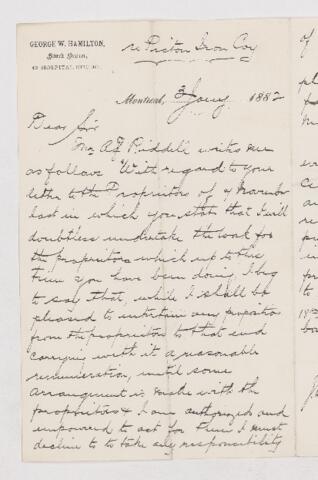 GEORGE W. HAMILTON,
Stock Broker,
re Picton Iron Coy
Montreal, 3 Jany 1882
Dear Sir
Mr A F Riddell writes me
as follows "With regard to your
letter to the Proprietors of 4 November
last in which you state that I will
doubtless undertake the work for
the proprietors which up to this
time you have been doing, I beg
to say that, while I shall be
pleased to entertain any proposition
from the proprietors to that end
carrying with it a reasonable
remuneration, until some
arrangement is made with the
proprietors & I am authorized and
empowered to act for them I must
decline to to take any responsibility
of